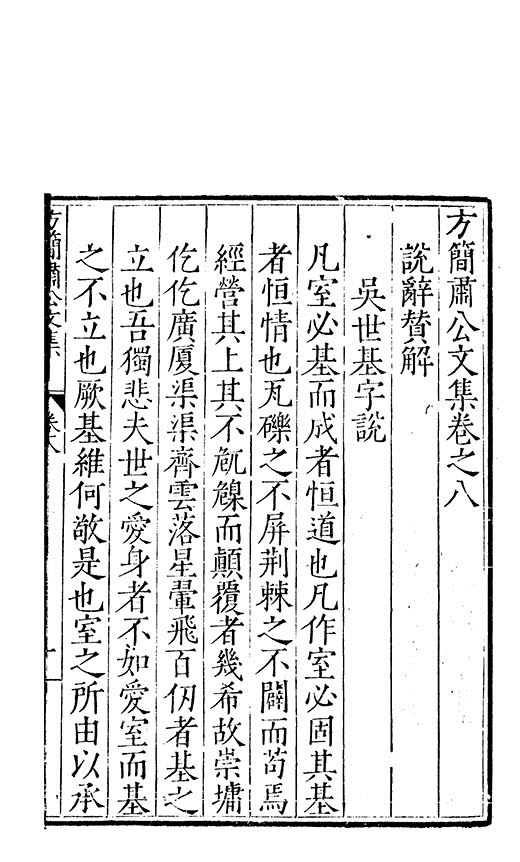 方簡肅公文集卷之八
說辭賛解
吳世基字說
凡室必基而成者恒道也凡作室必固其基
者恒情也瓦礫之不屏荆棘之不闢而苟焉
經營其上其不卼䠳而顛覆者幾希故崇墉
仡仡廣厦渠渠齊雲落星翬飛百仞者基之
立也吾獨悲夫世之愛身者不如愛室而基
之不立也厥基維何敬是也室之所由以承
方簡肅公文集
卷八
一